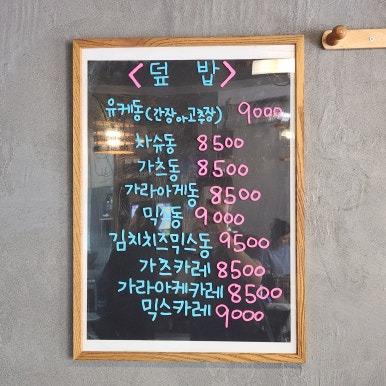 <덮 밥>
유케동(간장or고추장) 9000
차슈동 8500
가츠동 8500
가라아게동 8500
믹스동 9000
김치치즈믹스동 9500
가츠카레 8500
가라아케카레 8500
믹스카레 9000